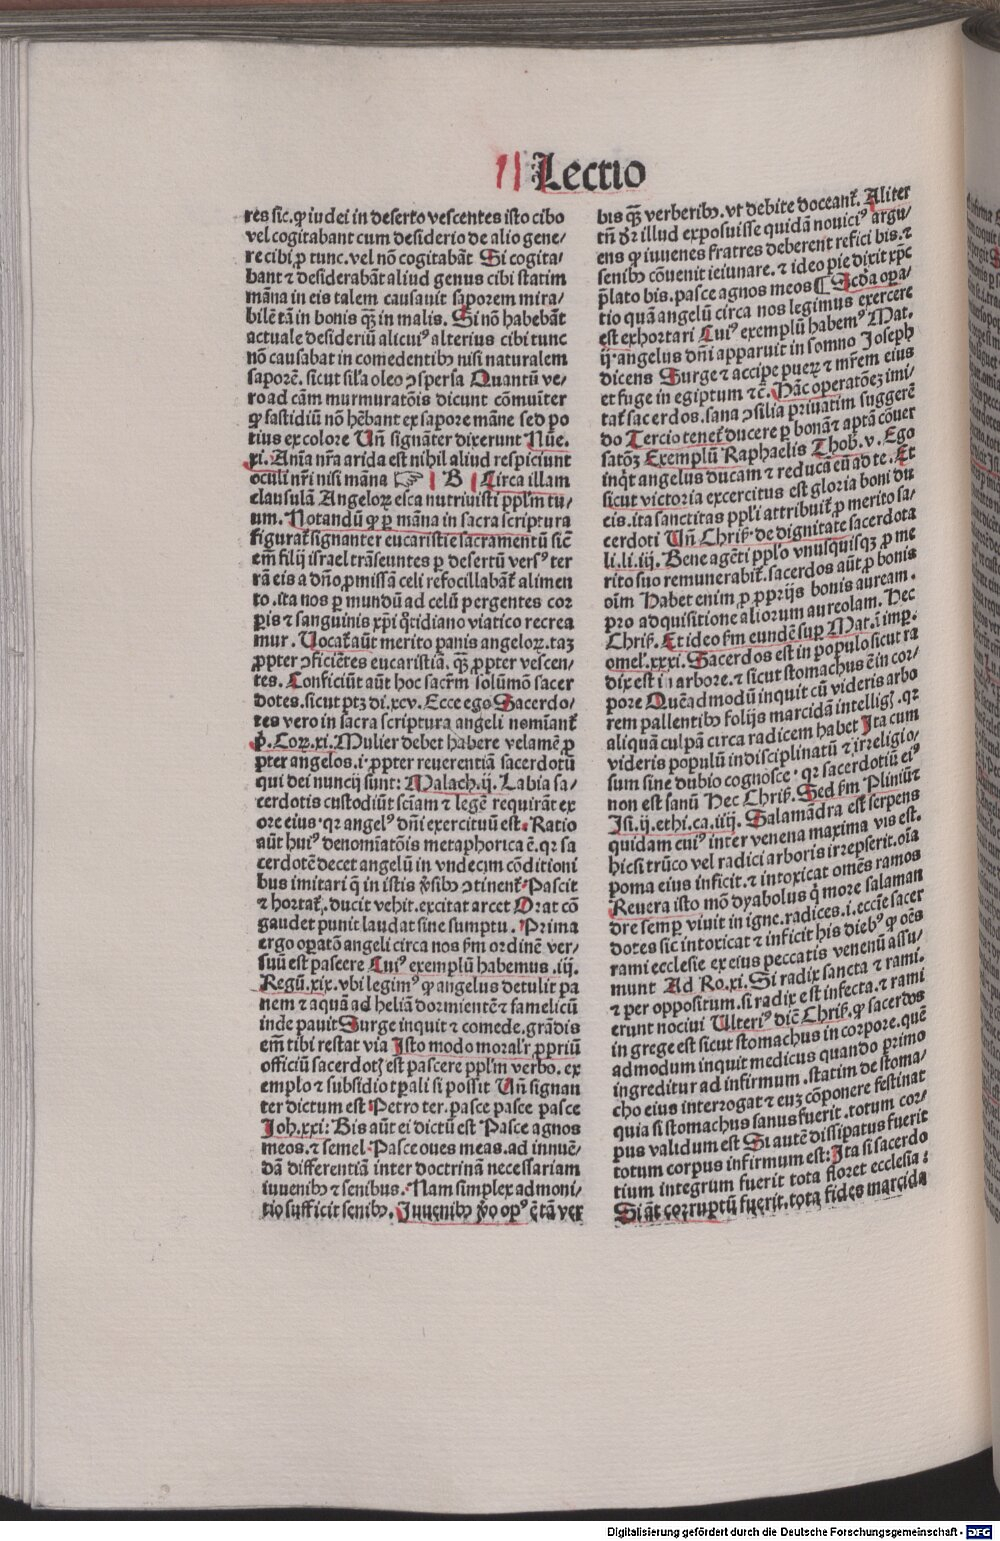 Lectio
res sic. ꝙ iudei in deserto vescentes isto cibo
vel cogitabant cum desiderio de alio gene/
re cibi ꝓ tunc. vel nō cogitabāt Si cogita/
bant ⁊ desiderabāt aliud genus cibi statim
māna in eis talem causauit saporem mira/
bilē tā in bonis qꝫ in malis. Si nō habebāt
actuale desideriū alicuiꝰ alterius cibi tunc
nō causabat in comedentibꝫ nisi naturalem
saporē. sicut sil'a oleo ɔspersa Quantū ve/
ro ad cām murmuratōis dicunt cōmuīter
ꝙ fastidiū nō hēbant ex sapore māne sed po
tius ex colore Uñ signāter dixerunt Nūe.
xi. Anīa nrā arida est nihil aliud respiciunt
oculi nr̄i nisi māna ☞ B Circa illam
clausulā Angeloꝝ esca nutriuisti ppl'm tu/
um. Notandū ꝙ ꝑ māna in sacra scriptura
figurat' signanter eucaristie sacramentū sic̄
em̄ filij israel trāseuntes ꝑ desertū versꝰ ter
rā eis a dño ꝓmissā celi refocillabāt' alimen
to. ita nos ꝑ mundū ad celū pergentes cor
ꝑis ⁊ sanguinis xp̄i q̄tidiano viatico recrea
mur. Uocat' aūt merito panis angeloꝝ. taꝫ
ꝓpter ɔficiētes eucaristiā. qꝫ ꝓpter vescen/
tes. Conficiūt aūt hoc sacr̄m solūmō sacer
dotes. sicut ptꝫ di. xcv. Ecce ego Sacerdo/
tes vero in sacra scriptura angeli nomīant'
p̄. Coꝝ. xi. Mulier debet habere velamē ꝓ
pter angelos. i. ꝓpter reuerentiā sacerdotū
qui dei nuncij sunt: Malach. ij. Labia sa/
cerdotis custodiūt sciam ⁊ legē requirāt ex
ore eius. qꝛ angelꝰ dñi exercituū est. Ratio
aūt huiꝰ denomīatōis metaphorica ē. qꝛ sa
cerdotē decet angelū in vndecim cōditioni
bus imitari q̄ in istis v̄sibꝫ ɔtinent'. Pascit
⁊ hortat'. ducit vehit. excitat arcet Orat cō
gaudet punit laudat sine sumptu. Prima
ergo oꝑatō angeli circa nos s'm ordinē ver/
suū est pascere Cuiꝰ exemplū habemus. iij.
Regū. xix. vbi legimꝰ ꝙ angelus detulit pa
nem ⁊ aquā ad heliā dormientē ⁊ famelicū
inde pauit Surge inquit ⁊ comede. grādis
em̄ tibi restat via Isto modo moral'r ꝓpriū
officiū sacerdotꝫ est pascere ppl'm verbo. ex
emplo ⁊ subsidio tꝑali si possit Uñ signan
ter dictum est Petro ter. pasce pasce pasce
Joh. xxi: Bis aūt ei dictū est Pasce agnos
meos. ⁊ semel. Pasce oues meas. ad innuē/
dā differentiā inter doctrinā necessariam
iuuenibꝫ ⁊ senibus. Nam simplex admoni/
tio sufficit senibꝫ. Juuenibꝫ v̄o opꝰ ē tā ver
bis qꝫ verberibꝫ. vt debite doceant'. Aliter
tñ dꝛ illud exposuisse quidā nouiciꝰ argu/
ens ꝙ iuuenes fratres deberent refici bis. ⁊
senibꝫ cōuenit ieiunare. ⁊ ideo pie dixit xp̄c
p̄lato bis. pasce agnos meos ¶ Scd'a oꝑa/
tio quā angelū circa nos legimus exercere
est exhortari Cuiꝰ exemplū habemꝰ Mat.
ij. angelus dñi apparuit in somno Joseph
dicens Surge ⁊ accipe pueꝝ ⁊ mr̄em eius
et fuge in egiptum ⁊c̄. Hāc operatōeꝫ imi/
tat' sacerdos. sana ɔsilia priuatim suggerē
do Tercio tenet' ducere ꝑ bonā ⁊ aptā cōuer
satōꝫ Exemplū Raphaelis Thob. v. Ego
inq̄t angelus ducam ⁊ reducā eū ad te. Et
sicut victoria excercitus est gloria boni du
cis. ita sanctitas ppl'i attribuit' ꝓ merito sa/
cerdoti Uñ Chriſ. de dignitate sacerdota
li. li. iij. Bene agēti ppl'o vnusquisqꝫ ꝓ me
rito suo remunerabit'. sacerdos aūt ꝓ bonis
oīm Habet enim ꝓ ꝓprijs bonis auream.
pro adquisitione aliorum aureolam. Hec
Chriſ. Et ideo s'm eundē suꝑ Mat. ī imꝑ.
omel'. xxxi. Sacerdos est in populo sicut ra
dix est in arbore. ⁊ sicut stomachus ē in cor/
pore Quēadmodū inquit cū videris arbo
rem pallentibꝫ folijs marcidā intelligꝫ. qꝛ
aliquā culpā circa radicem habet Ita cum
videris populū indisciplinatū ⁊ irreligio/
sum sine dubio cognosce. qꝛ sacerdotiū eiꝰ
non est sanū Hec Chriſ. Sed s'm Pliniū ⁊
Jsi. ij. ethi. ca. iiij. Salamādra est serpens
quidam cuiꝰ inter venena maxima vis est.
hic si trūco vel radici arboris irrepserit. oīa
poma eius inficit. ⁊ intoxicat omēs ramos
Reuera isto mō dyabolus q̇ more salaman
dre semꝑ viuit in igne. radices. i. ecclīe sacer
dotes sic intoxicat ⁊ inficit his diebꝰ ꝙ oēs
rami ecclesie ex eius peccatis venenū assu/
munt Ad Ro. xi. Si radix sancta ⁊ rami.
⁊ per oppositum. si radix est infecta. ⁊ rami
erunt nociui Ulteriꝰ dic̄ Chriſ. ꝙ sacerdos
in grege est sicut stomachus in corpore. quē
admodum inquit medicus quando primo
ingreditur ad infirmum. statim de stoma/
cho eius interrogat ⁊ euꝫ cōponere festinat
quia si stomachus sanus fuerit. totum cor/
pus validum est Si autē dissipatus fuerit
totum corpus infirmum est: Ita si sacerdo
tium integrum fuerit tota floret ecclesia:
Si āt corruptū fuerit. tota fides marcida
Digitalisierung gefördert durch die Deutsche Forschungsgemeinschaft - DFG